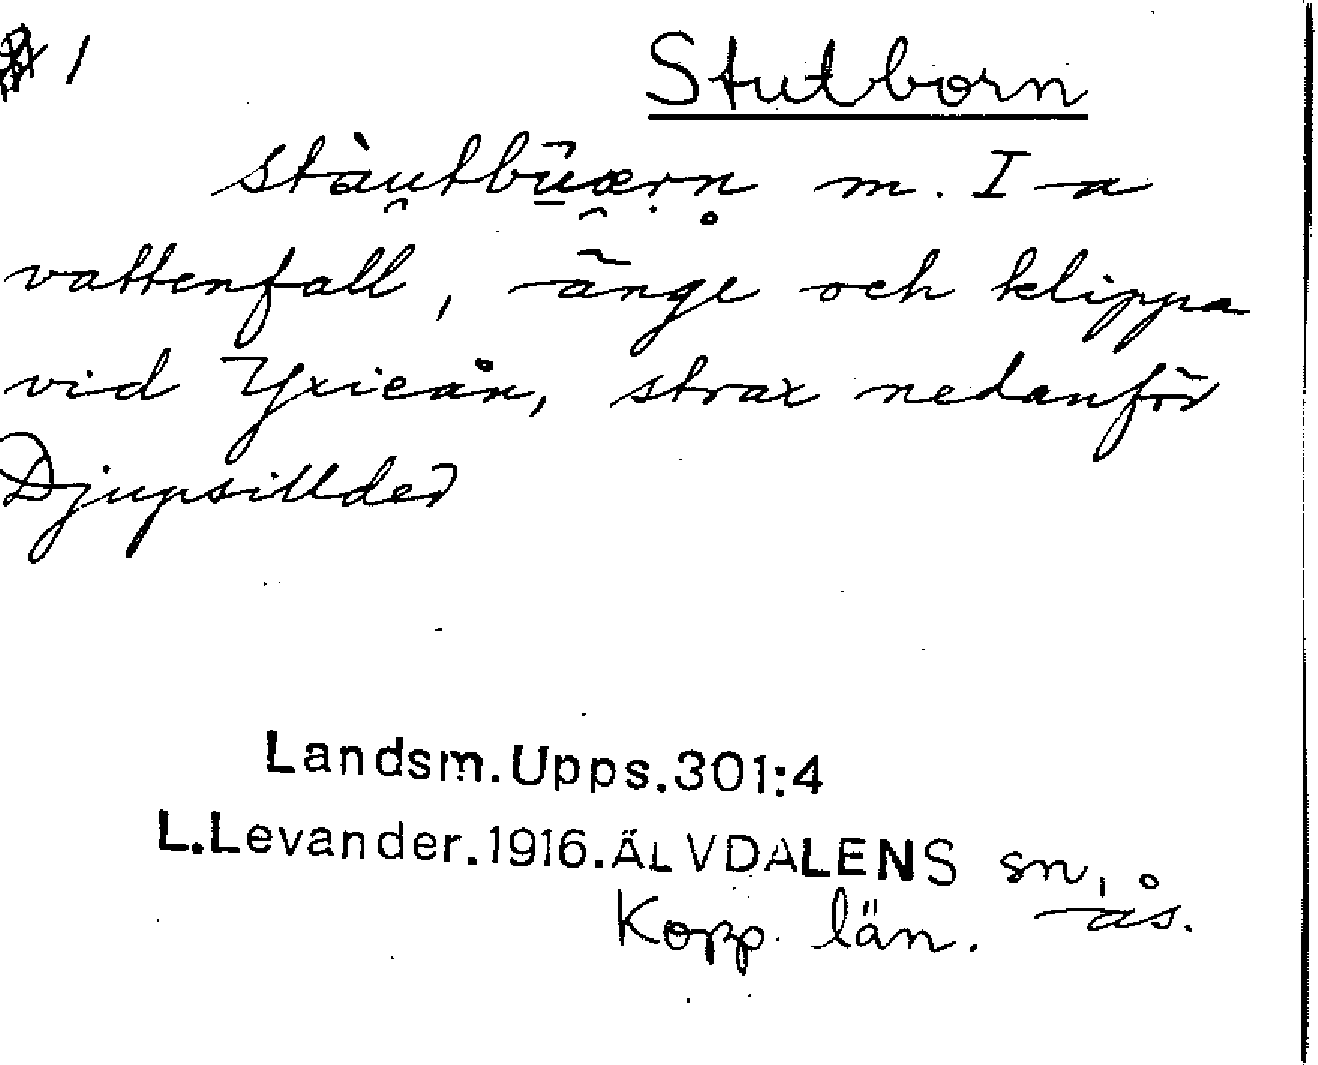 1
Stutborn
stàu̯tbū̲æ̯rn̥ m. I a
vattenfall, änge och klippa
vid Yxieån, strax nedanför
Djupsillder
Landsm.Upps.301:4
L.Levander.1916.ÄLVDALENS sn, ås.
Kopp. län.